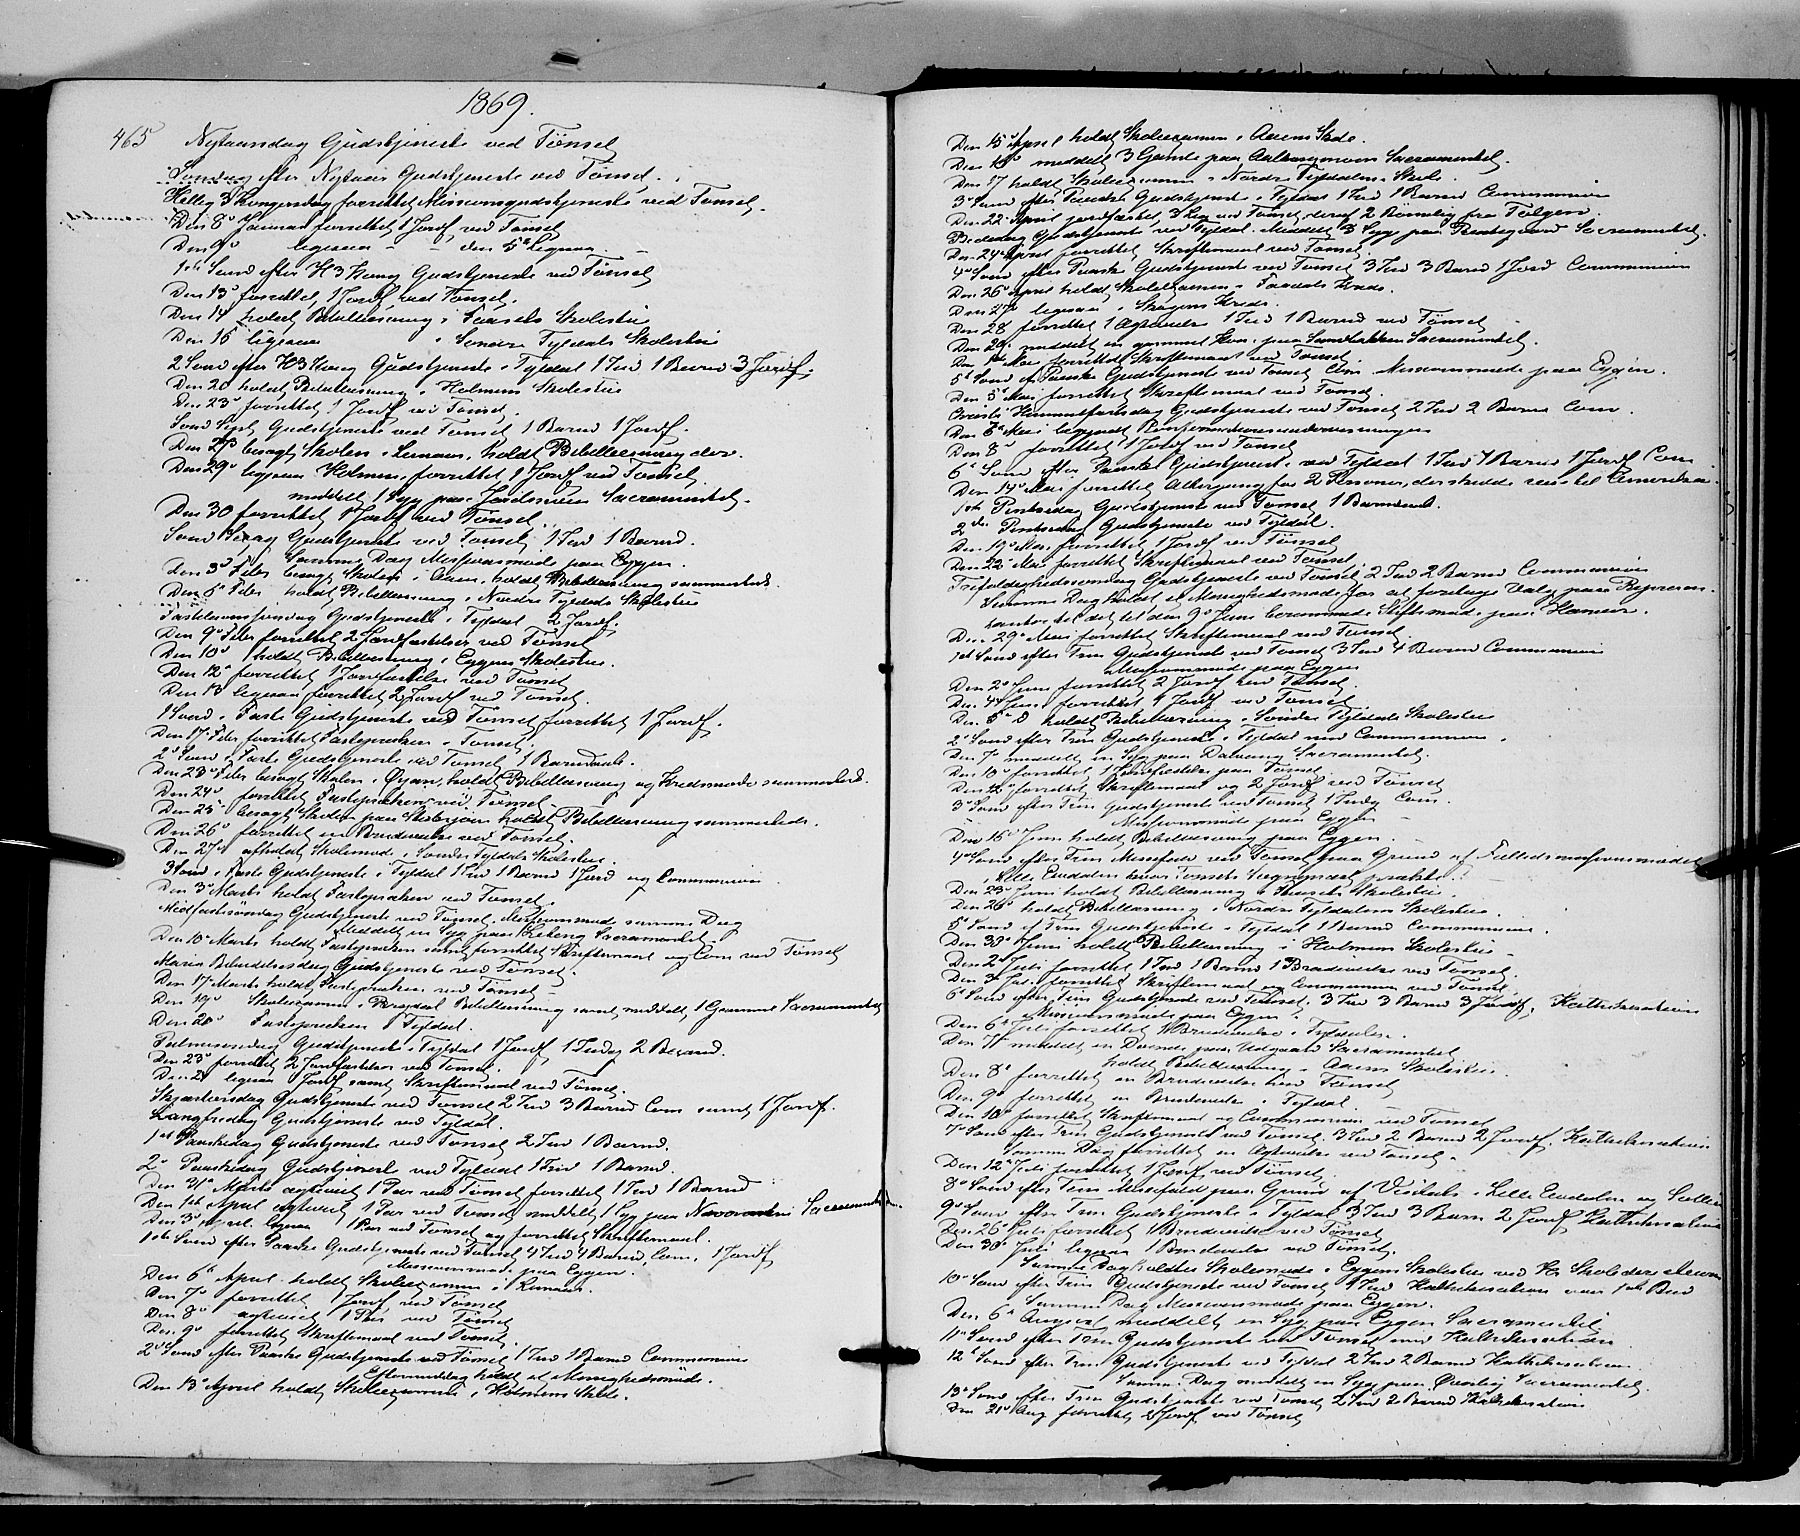 1869.
465 Nytaarsdag Gudstjeneste ved Tönset
Söndag efter Nytaar Gudstjeneste ved Tönset.
Hellig 3 Kongersdag forrettet Missionsgudstjeneste ved Tönset.
Den 8de Januar forrettet 1 Jordf ved Tönset
Den 9de ligesaa den 5te ligesaa
1ste Sönd efter H 3 Kong Gudstjeneste ved Tönset
Den 13de forrettet 1 Jordf ved Tönset.
Den 14 holdt Bibellæsning i Faasets Skolestue
Den 15 ligesaa i Söndre Tyldals Skolestue
2 Sönd efter H3 Kong Gudstjeneste i Tyldal 1 Ind 1 Barnd 3 Jordf.
Den 20 holdt Bibellæsning i Holmens Skolestue
Den 23de forrettet 1 Jordf ved Tönset.
Sönd Sept Gudstjeneste ved Tönset 1 Barnd 1 Jordf.
Den 27 besögt Skolen i holdt Bibellæsning der.
Den 29de ligesaa Holmen, forrettet 1 Jordf ved Tönset.
meddelt 1 Syg paa Sacramentet.
Den 30 forrettet 1 Jordf ved Tönset.
Sönd Sexag Gudstjeneste ved Tönset 1 Ind 1 Barnd.
Samme Dag Missionsmöde paa Eggen.
Den 3de Febr besögt Skolen i Aaen, holdt Bibellæsning sammesteds.
Den 5te Febr holdt Bibellæsning i Nordre Tyldals Skolestue
Fastelavnssöndag Gudstjeneste i Tyldal 2 Jordf.
Den 9de Febr forrettet 2 Jordfæstelser ved Tönset
Den 10de holdt Bibellæsning i Eggens Skolestue.
Den 12te forrettet 1 Jordfæstelse ved Tönset
Den 13 ligesaa forrettet 2 Jordf ved Tönset.
1 Sönd i Faste Gudstjeneste ved Tönset forrettet 1 Jordf.
Den 17 Febr forrettet Fasteprækien i Tönset.
2 Sönd i Faste Gudstjeneste ved Tönset 1 Barnedaab.
Den 23de Febr besögt Skolen i Öyan, holdt Bibellæsning og Kredsmöde sammesteds.
Den 24de forrettet Fasteprækien ved Tönset
Den 25de besögt Skolen paa holdt Bibellæsning sammesteds.
Den 26de forrettet en Brudevielse ved Tönset.
Den 27de afholdt Skolemöde i Söndre Tyldals Skolestue.
3 Sönd i Faste Gudstjeneste i Tyldal 1 Ind 1 Barnd 1 Jord og Communion.
Den 3de Marts holdt Fasteprækien ved Tönset.
Midfastesöndag Gudstjeneste ved Tönset. Missionsmöde samme Dag
Meddelt en Syg paa Sacramentet.
Den 10de Marts holdt Fasteprækien samt forrettet Skriftemaal og Com ved Tönset
Maria Bebudelsesdag Gudstjeneste ved Tönset.
Den 17 Marts holdt Fasteprækien ved Tönset
Den 19de Skoleexamen i Bibellæsning samt meddelt 1 Gammel Sacramentet
Den 20de Fasteprækien i Tyldal.
Palmesöndag Gudstjeneste i Tyldal 1 Jordf 1 Indg 2 Barnd.
Den 23de forrettet 2 Jordfæstelser ved Tönset.
Den 24 ligesaa 1 Jordf samt Skriftemaal ved Tönset.
Skjærtorsdag Gudstjeneste ved Tönset 2 Ind 3 Barnd Com samt 1 Jordf.
Langfredag Gudstjeneste ved Tyldal.
1ste Paaskedag Gudstjeneste ved Tönset 2 Ind 1 Barnd.
2den Paaskedag Gudstjeneste ved Tyldal 1 Ind 1 Barnd.
Den 31te Marts ægteviet 1 Par ved Tönset forrettet 1 Ind 1 Barnd
Den 1ste April ægteviet 1 Par ved Tönset meddelt 1 Syg paa Sacramentet
Den 3de April ligesaa 1 Par ved Tönset og forrettet Skriftemaal.
1ste Sönd efter Paaske Gudstjeneste ved Tönset 4 Ind 4 Barnd, Com, 1 Jordf
Missionsmöde paa Eggen.
Den 6te April holdt Skoleexamen i
Den 7de forrettet 1 Jordf ved Tönset
Den 8de ægteviet 1 Par ved Tönset
Den 9de forrettet Skriftemaal ved Tönset.
2den Sönd efter Paaske Gudstjeneste ved Tönset 1 Ind 1 Barnd Communion
Eftermiddag holdt et Menighedsmöde.
Den 13de April holdt Skoleexamen i Holmens Skole.
Den 15de April holdt Skoleexamen i Aaens Skole.
Den 16de meddelt 3 Gamle paa Sacramentet.
Den 17 holdt Skoleexamen i Nordre Tyldalens Skole
3de Sönd efter Paaske Gudstjeneste i Tyldal 1 Ind 1 Barnd Communion
Den 22 April jordfæstet 3 Lig ved Tönset deraf 2 Börnelig fra Tolgen.
Bededag Gudstjeneste ved Tyldal. Meddelt 3 Syg paa Sacramentet.
Den 24 April forrettet Skriftemaal ved Tönset.
4de Sönd efter Paaske Gudstjeneste ved Tönset 3 Ind 3 Barnd 1 Jord Communion
Den 26de April holdt Skoleexamen i Faasets Kreds.
Den 27de ligesaa i Skogens Kreds.
Den 28 forrettet 1 Ægtevielse 1 Ind 1 Barnd ved Tönset
Den 29de meddelt en gammel Kone paa Sacramentet.
Den 1ste Mai forrettet Skriftemaal ved Tönset.
5te Sönd ef Paaske Gudstjeneste ved Tönset Com Missionsmöde paa Eggen.
Den 5te Mai forrettet Skriftemaal ved Tönset
Christi Himmelfartsdag Gudstjeneste ved Tönset 2 Ind 2 Barnd Com.
Den 7de Mai begyndt Konfirmationsundervisningen
Den 8de forrettet 1 Jordf ved Tönset
6te Sönd efter Paaske Gudstjeneste ved Tyldal 1 Ind 1 Barnd 1 Jordf Com
Den 14de Mai forrettet Altergang for 2 Personer, der skulde reise til Amerika.
1ste Pintsedag Gudstjeneste ved Tönset 1 Barnedaab.
2den Pintsedag Gudstjeneste ved Tyldal.
Den 19de Mai forrettet 1 Jordf ved Tönset
Den 22de Mai forrettet Skriftemaal ved Tönset
Trefoldighedssöndag Gudstjeneste ved Tönset 2 Ind 2 Barnd Communion
Samme Dag holdt et Menighedsmöde for at foretage Valg paa Repræsen-
tanter til det til den 9de Juni berammede Stiftsmöde paa Hamar.
Den 29de Mai forrettet Skriftemaal ved Tönset
1ste Sönd efter Trin Gudstjeneste ved Tönset 3 Ind 4 Barnd Communion
Missionsmöde paa Eggen
Den 2de Juni forrettet 2 Jordf ved Tönset
Den 4de Juni forrettet 1 Jordf ved Tönset
Den 5te D holdt Bibellæsning i Söndre Tyldals Skolestue
2de Sönd efter Trin Gudstjeneste i Tyldal med Communion.
Den 7de meddelt en Syg paa Sacramentet.
Den 10de forrettet 1 Jordfæstelse paa Tönset
Den 12te forrettet Skriftemaal og 2 Jordf ved Tönset
3de Sönd efter Trin Gudstjeneste ved Tönset 1 Indg Com.
Missionsmöde paa Eggen
Den 16de Juni holdt Bibellæsning paa Eggen.
4de Sönd efter Trin Messefald ved Tönset paa Grund af Fællesmissionsmödet
i Lille Elvdalen hvor Tönsets Sognepræst prækte.
Den 23de Juni holdt Bibellæsning i Faasets Skolestue.
Den 26de holdt Bibellæsning i Nordre Tyldalens Skolestue.
5te Sönd ef Trin Gudstjeneste i Tyldal 1 Barnd Communion.
Den 30de Juni holdt Bibellæsning i Holmens Skolestue
Den 2de Juli forrettet 1 Ind 1 Barnd 1 Brudevielse ved Tönset.
Den 3de Juli forrettet Skriftemaal og Communion ved Tönset
6te Sönd efter Trin Gudstjeneste ved Tönset. 3 Ind 3 Barnd 3 Jordf. Kathekisation
Missionsmöde paa Eggen.
Den 6te Juli forrettet 1 Brudevielse i Tyldalen.
Den 7de meddelt en Döende paa Sacramentet
holdt Bibellæsning i Aaens Skolestue.
Den 8de forrettet en Brudevielse ved Tönset
Den 9de forrettet en Brudevielse i Tyldal
Den 10de forrettet Skriftemaal og Communion ved Tönset
7de Sönd efter Trin Gudstjeneste ved Tönset. 3 Ind 2 Barnd 2 Jordf. Kathekisation
Samme Dag forrettet en Ægtevielse ved Tönset.
Den 12te Juli forrettet 1 Jordf ved Tönset.
8de Sönd efter Trin Messefald paa Grund af Visitats i Lille Elvdalen og
9de Sönd efter Trin Gudstjeneste i Tyldal 3 Ind 3 Barn 2 Jordf Kathekisation
Den 26de Juli forrettet 1 Brudevielse ved Tönset
Den 30de Juli ligesaa 1 Brudevielse ved Tönset.
Samme Dag holdtes Skolemöde i Eggens Skolestue ved Hr Skoledirecteuren
10de Sönd efter Trin Gudstjeneste ved Tönset 1 Ind Kathekisation over 1ste Bud
Samme Dag Missionsmöde paa Eggen.
Den 6te August meddelt en Syg paa Eggen Sacramentet
11te Sönd efter Trin Gudstjeneste ved Tönset med Kathekisation
12te Sönd efter Trin Gudstjeneste ved Tyldal 2 Ind 2 Barnd Kathekisation
Samme Dag meddelt en Syg paa Sacramentet.
13de Sönd efter Trin Gudstjeneste ved Tönset 2 Ind 2 Barnd Kathekisation
Den 21de Aug forrettet 2 Jordf ved Tönset